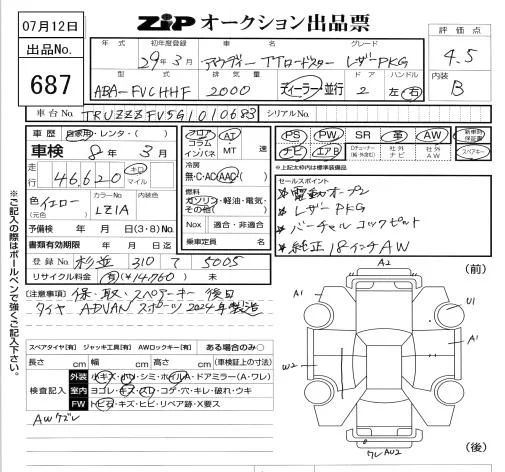 07月12日
ZIP オークション出品票
出品No.
687
評価点
4.5
内装
B
年式 初年度登録 車名 グレード
29年3月 アウディー TTロードスター レザーPKG
型式 排気量 ドア ハンドル
ABA-FVCHHF 2000 ディーラー・並行 2 左・右
車台No. TRUZZZFV5G1010683 シリアルNo.
車歴 自家用・レンタ・( )
車検 8年3月
走行 46,620 キロ マイル
色 イエロー (元色) カラーNo. LZ1A 内装色
予備検 年 月 日(3・8)No.
書類有効期限 年 月 日迄
登録No. 杉並 310 て 5005
リサイクル料金 有(¥14,760) 未
フロア コラム インパネ AT MT 速
冷房
無・C・AC・AAC
燃料
ガソリン・軽油・電気・その他( )
Nox 適合・非適合
乗車定員 名
PS PW SR 革 AW 新車時保証書
ナビ エアB 社外ナビ 社外AW スペアキー
※上記太枠内は標準装備品
セールスポイント
* 電動オープン
* レザーPKG
* バーチャルコックピット
* 純正18インチAW
[注意事項] 保・取・スペアーキー 後日
タイヤ ADVAN スポーツ 2024年製造
スペアタイヤ[有] ジャッキ工具[有] AWロックキー[有] ある場合のみ○
長さ cm 幅 cm 高さ cm (車検証上の寸法)
検査記入
外装 小キズ・凹・シミ・ホイルA・ドアミラー(A・ワレ)
室内 ヨゴレ・キズ・スレ・コゲ・穴・キレ・破れ・ウキ
FW トビ石・キズ・ヒビ・リペア跡・X要ス
AWズレ
※ご記入の際はボールペンで強くご記入下さい。
(前)
A2
A1
U1
A1
W2
ワレ AU2
(後)